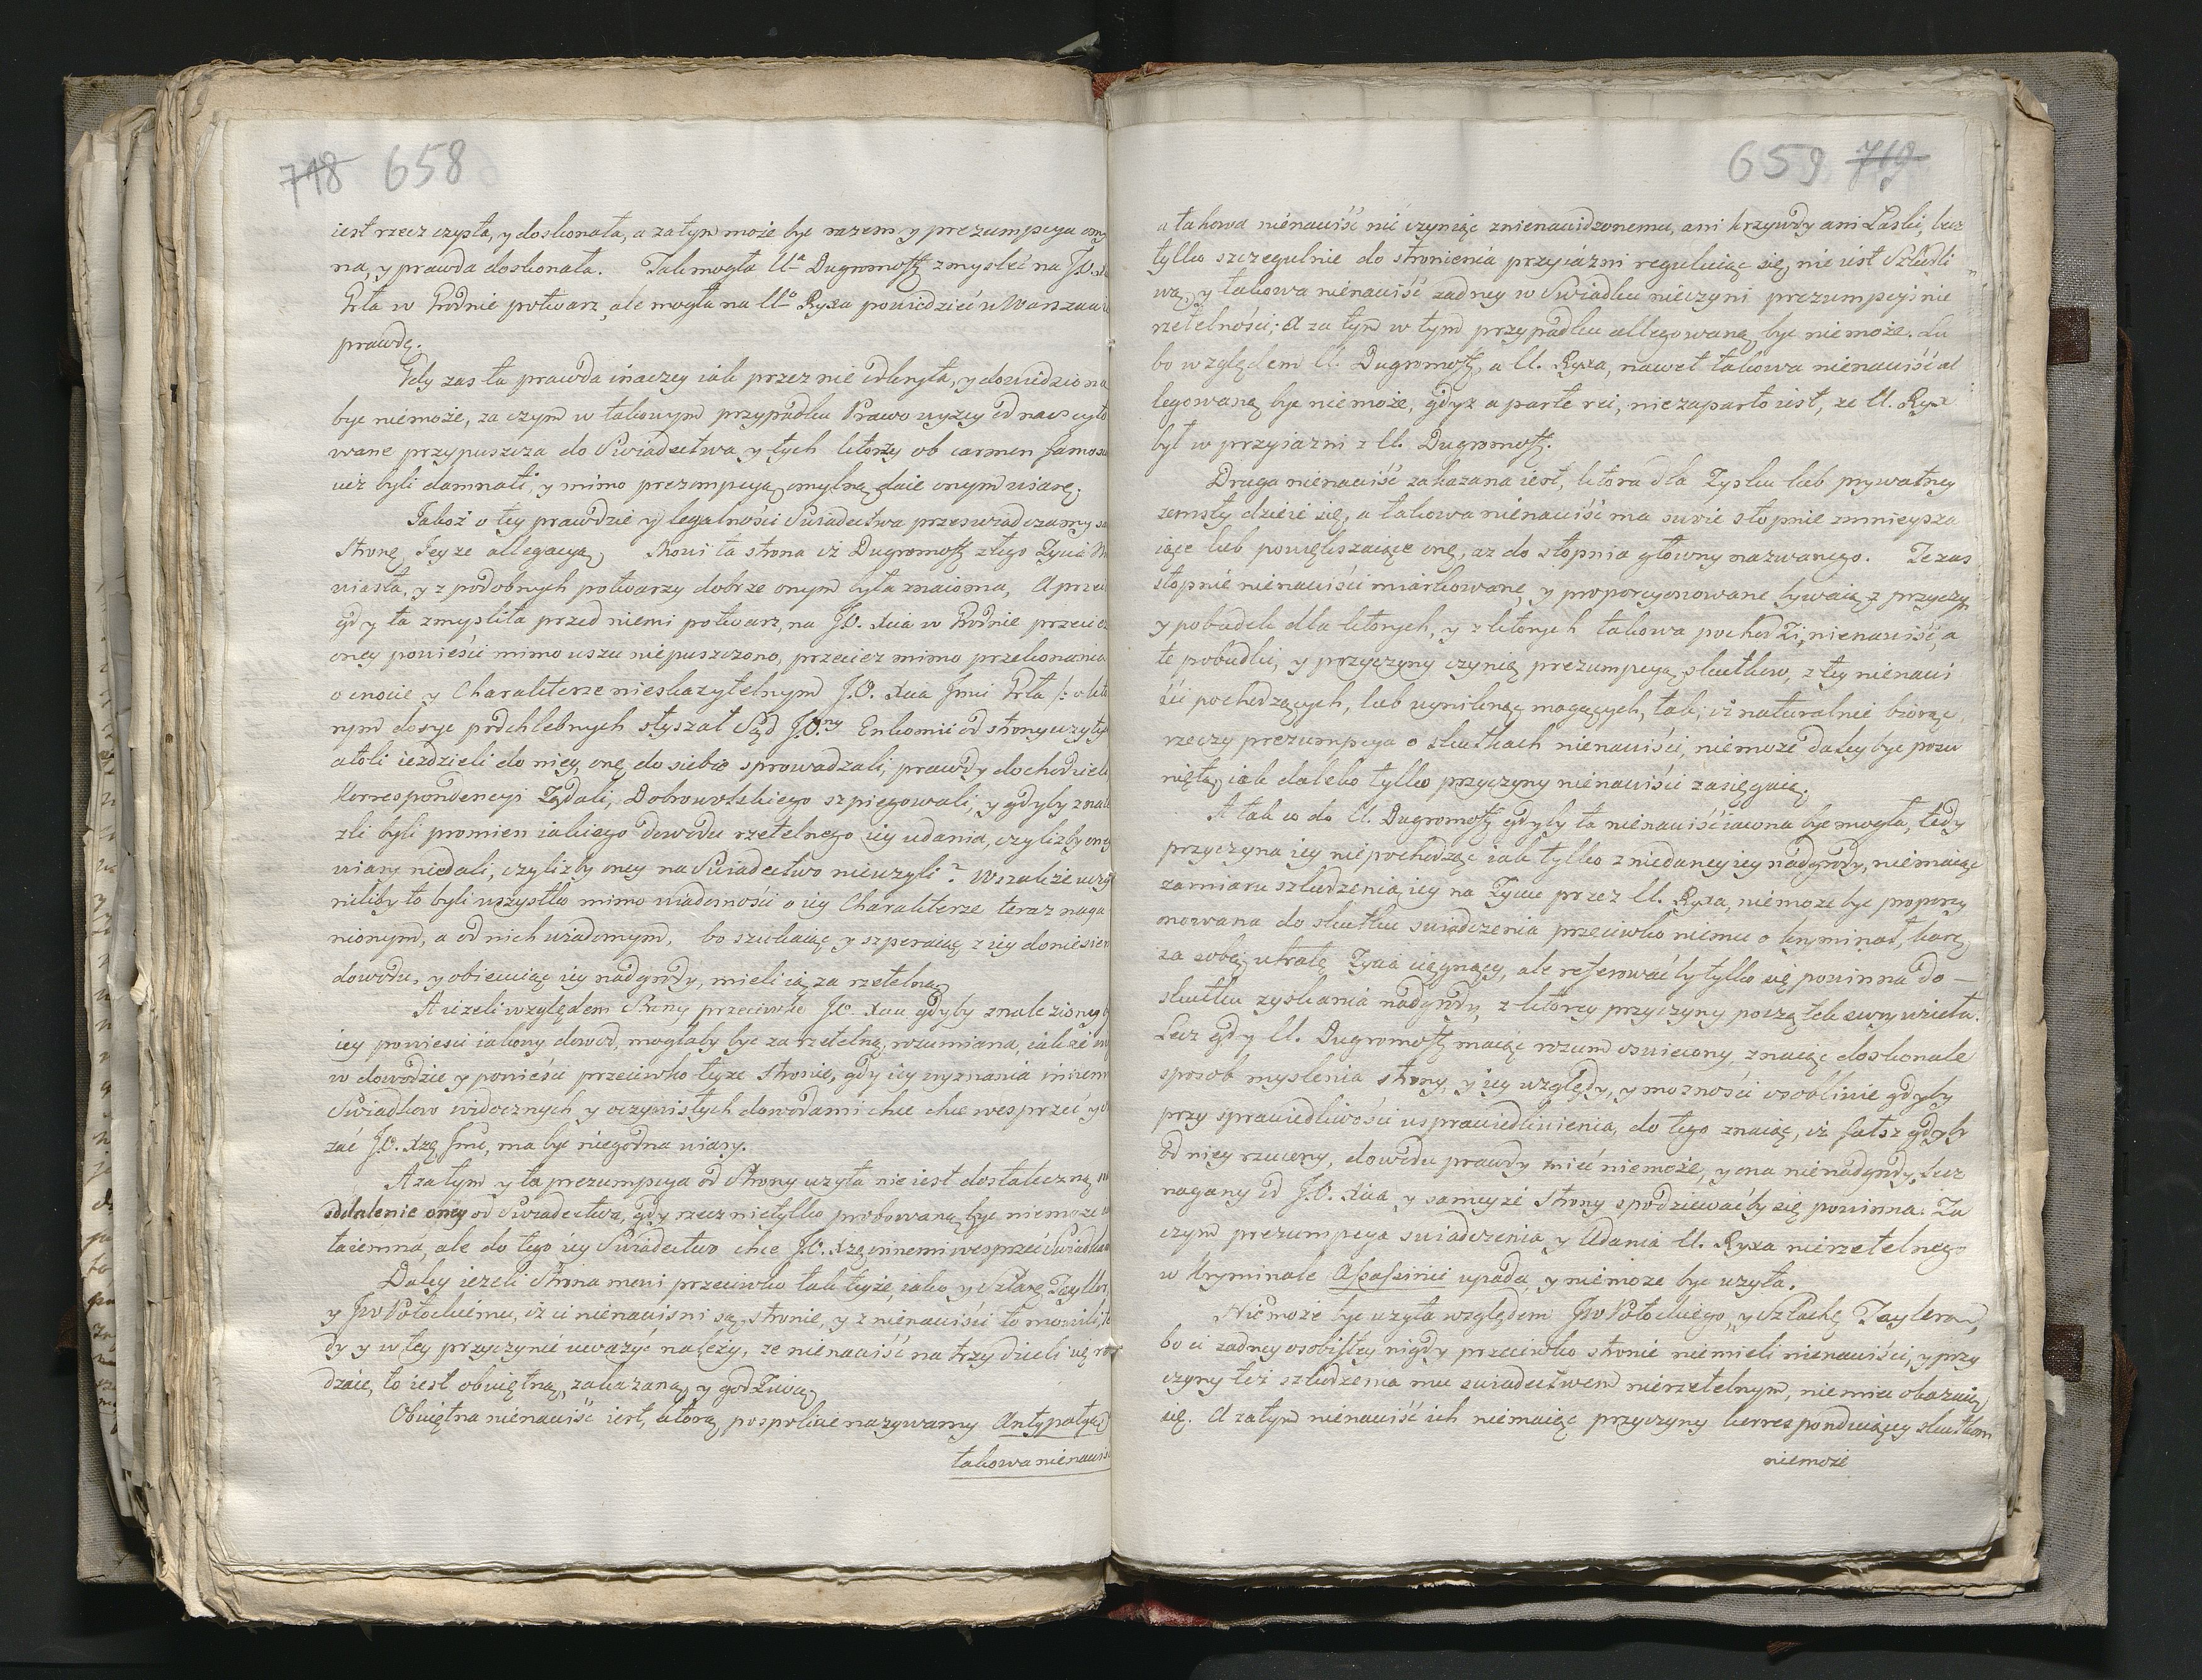 718 658
iest rzecz czysta, y doskonała, a zatym może być razem y prezumpcya omy
na, y prawda doskonała. Tak mogła Ur̃a Dugromoff zmyslić na J.O. Xcia
Grła w Grodnie potwarz, ale mogła na Ur̃o Ryxa powiedzieć w Warszawie
prawdę.
Gdy zas ta prawda inaczey iak przez nie odkryta, y dowiedziona
być niemoże, za czym w takowym przypadku Prawo wyzey od nas cyto
wane przypuszcza do Swiadectwa y tych ktorzy ob carmen famosu
iuż byli damnati, y mimo prezumpcyą omylną daie onym wiarę.
Jakoż o tey prawdzie y legalności Swiadectwa przeswiadczamy sa
Stronę Jeyze allegacyą, Mowi ta strona iż Dugromoff złego Zycia
wiasta, y z podobnych potwarzy dobrze onym była znaioma, A prze
gdy ta zmysliła przed niemi potwarz, na J.O. Xcia w Grodnie przecież
oney powieści mimo uszu niepuszczono, przecież mimo przekonania
o cnocie y Charakterze nieskazytelnym J.O. Xcia Jmci Grła /: o któ
rym dosyć pochlebnych słyszał Sąd J.O.ny Enkomii od strony użyty
atoli ieździeli do niey, onę do siebie sprowadzali, prawdy dochodzieli
Korrespondencyi Żądali, Dobrowolskiego szpiegowali, y gdyby znale
zli byli promien iakiego dowodu rzetelnego iey udania, czyliżby oney
wiary niedali, czyliżby oney na Swiadectwo nieuzyli? Wszakże uczy
niliby to byli wszystko mimo wiadomości o iey Charakterze teraz naga
nionym, a od nich wiadomym, bo szukaiąc y szperaiąc z iey doniesien
dowodu, y obiecuiąc iey nadgrody, mieli ią za rzetelną
A ieżeli względem Strony przeciwko J.O. Xcia gdyby znaleziony b
iey powiesci iakowy dowod, mogłaby być za rzetelną rozumiana, iakże
w dowodzie y powieści przeciwko teyze stronie, gdy iey wyznania innem
Swiadkow widocznych y oczywistych dowodami chce chce wesprzeć y
zać J.O. Xżę Jmć, ma być niegodna wiary.
A zatym y ta prezumpcya od Strony użyta nie iest dostateczną
oddalenie oney od Swiadectwa, gdy rzecz nietylko probowaną być niemoże
taiemna, ale do tego iey Swiadectwo chce J.O. Xżę innemi wesprzeć Swiadkam
Daley ieżeli Strona mowi przeciwko tak teyże, iako y Szlach. Taylor,
y JW Potockiemu, iż ci nienawisni są stronie, y z nienawiści to mowili, te
dy y w tey przyczynie uważyć należy, ze nienawiść na trzy dzieli się ro
dzaie, to iest obojętną, zakazaną y godziwą
Oboiętna nienawiść iest, którą pospolicie nazywamy Antypatyą
takowa nienawiść
659 719
a takowa nienawiść nic czyniąc znienawidzonemu, ani krzywdy ani Łaski, lecz
tylko szczegulnie do stronienia przyiaźni reguluiąc się, nie iest Szkodli
wą, y takowa nienawiść żadney w Swiadku nieczyni prezumpcyi nie
rzetelności; A za tym w tym przypadku allegowaną być niemoże. Lu
bo względem U. Dugromoff, a U. Ryxa, nawet takowa nienawiść al
legowaną być niemoże, gdyż a parte rei, niezaparto iest, ze U. Ryx
był w przyiazni z U. Dugromoff.
Druga nienawiść zakazana iest, ktora dla Zysku lub prywatney
zemsty dzieie się, a takowa nienawiść ma swoie stopnie zmnieysza
iące lub powiększaiące onę, az do stopnia głowny nazwanego. Te zas
stopnie nienawisci miarkowane, y proporcyonowane bywaią z przyczyn
y pobudek dla ktorych, y z ktorych takowa pochodzi nienawiść, a
te pobudki, y przyczyny czynią prezumpcyą skutkow, z tey nienawi
ści pochodzących, lub wyniknąć mogących, tak, iż naturalnie biorąc
rzeczy prezumpcya o skutkach nienawiści, niemoze daley być posu
niętą, iak daleko tylko przyczyny nienawiści zasięgaią.
A tak co do U. Dugromoff gdyby ta nienawiść iawna być mogła, tedy
przyczyna iey niepochodząc iak tylko z niedaney iey nadgrody, niemaiąc
zamiaru szkodzenia iey na Życiu przez U. Ryxa, niemoże być proporcy
onowana do skutku swiadczenia przeciwko niemu o kryminał, karę
za sobą utratę Życia ciągnący, ale referować by tylko się powinna do –
skutku zyskania nadgrody, z ktorey przyczyny początek swoy wzieła.
Lecz gdy U. Dugromoff maiąc rozum oswiecony, znaiąc doskonale
sposob myslenia strony, y iey względy, y możności osoblinie gdyby
przy sprawiedliwości usprawiedliwienia, do tego znaiąc, iż fałsz gdyby
od niey rzucony, dowodu prawdy mieć niemoże, y ona nienadgrody, lecz
nagany od J.O. Xcia y sameyże Strony spodziewać by się powinna. Za
czym prezumpcya swiadczenia y Udania U. Ryxa nierzetelnego
w Kryminale Assassinii upada, y niemoże być uzyta.
Niemoże być uzyta względem JW Potockiego, y Szlache. Taylera,
bo ci żadney osobistey nigdy przeciwko stronie niemieli nienawiści, y przy
czyny też szkodzenia mu swiadectwem nierzetelnym, niemieć okazuią
się. A zatym nienawiść ich niemaiąc przyczyny korrespondującey skutkom
niemoże